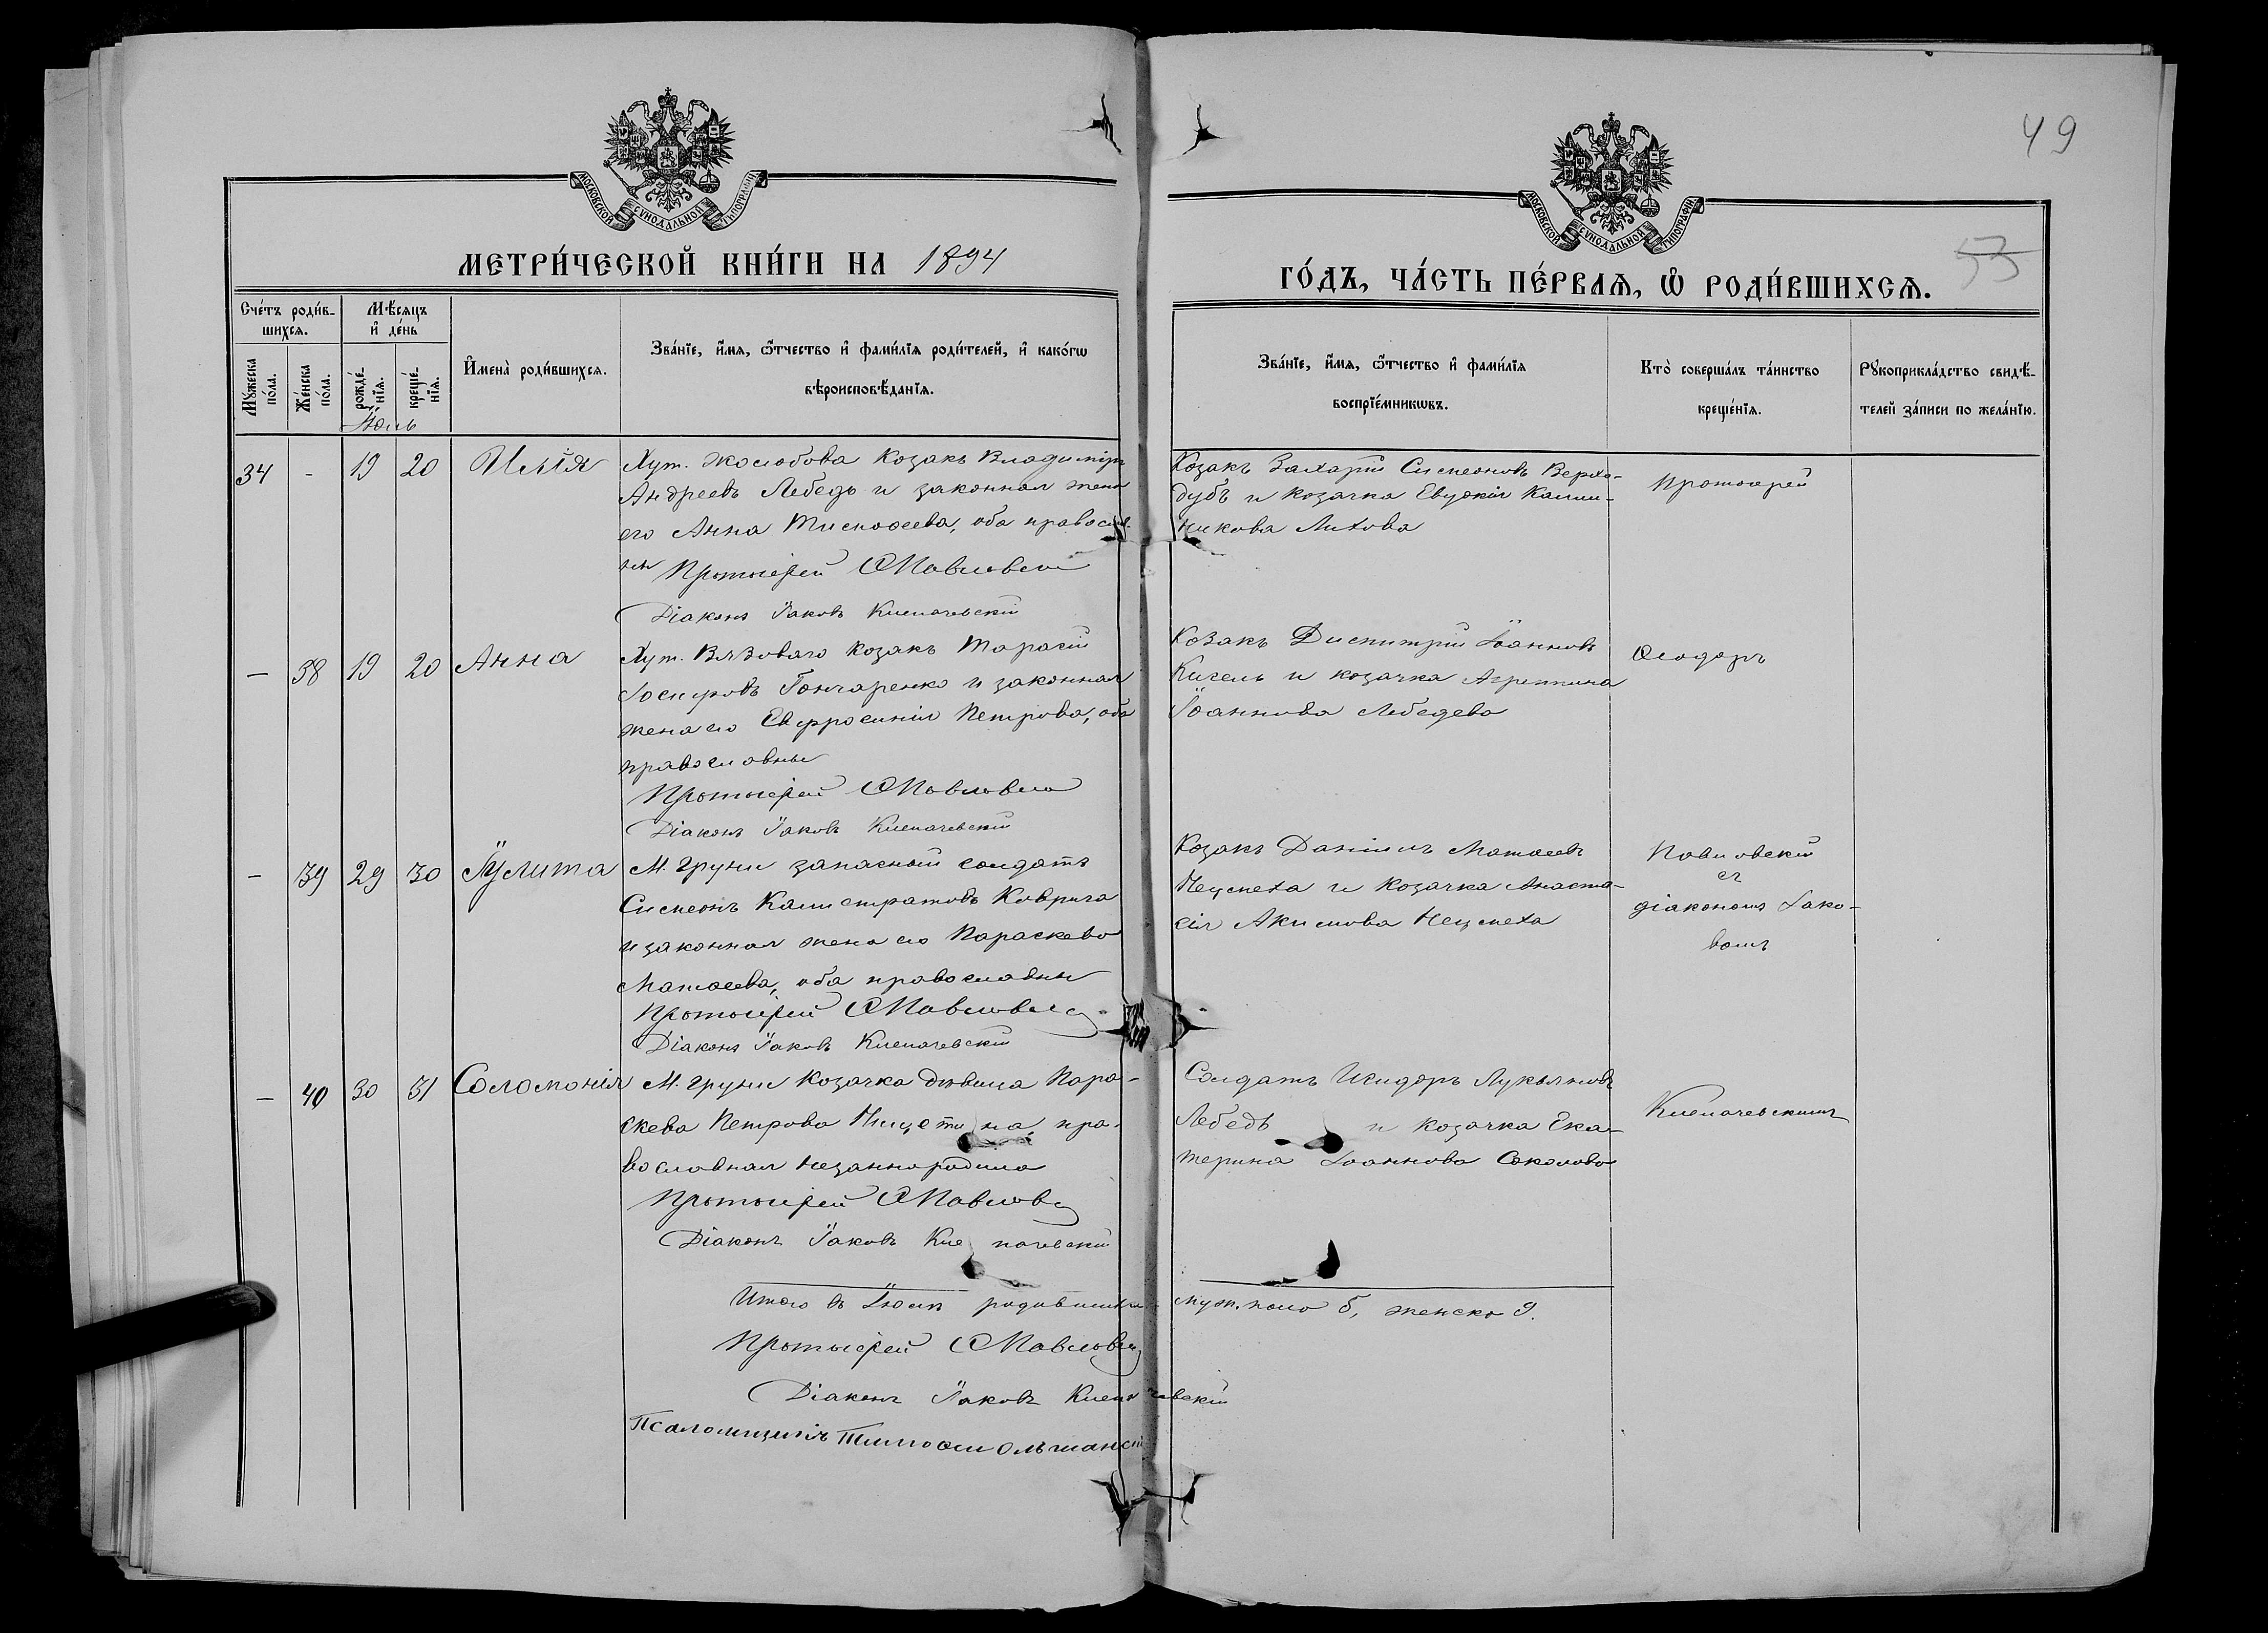 49
53
МОСКОВСКОЙ СѴНОДАЛЬНОЙ ТИПОГРАФІИ
МОСКОВСКОЙ СѴНОДАЛЬНОЙ ТИПОГРАФІИ
МЕТРИ́ЧЕСКОЙ КНИ́ГИ НА 1894
ГО́ДЪ, ЧА́СТЬ ПЕ́РВАѦ, Ѡ҆ РОДИ́ВШИХСѦ.
Сче́тъ роди́в-
шихсѧ.
Мѣ́сѧцъ
и҆ де́нь
Мꙋ́жеска
по́ла.
Же́нска
по́ла.
рожде́-
нїѧ.
креще́-
нїѧ.
И҆мена̀ роди́вшихсѧ.
Зва́нїе, и҆́мѧ, ѻ҆́тчество и҆ фами́лїѧ роди́телей, и҆ како́гѡ
вѣроисповѣ́данїѧ.
Зва́нїе, и҆́мѧ, ѻ҆́тчество и҆ фами́лїѧ
воспрїе́мникѡвъ.
Кто̀ соверша́лъ та́инство
креще́нїѧ.
Рꙋкоприкла́дство свидѣ́-
телей за́писи по жела́нїю.
Іюль
34 - 19 20 Илія
Хут. Жолобова козакъ Владиміръ
Андреевъ Лебедь и законная жена
его Анна Тимоѳеева, оба православ-
ны Протоіерей Ѳ Павловскій
Діаконъ Іаковъ Клепачевскій
Козакъ Захарій Симеоновъ Верхо-
дубъ и козачка Евдокія Калин-
никова Лихова
Протоіерей
— 38 19 20 Анна
Хут. Вязоваго козакъ Тарасій
Іосифовъ Гончаренко и законная
жена его Евфросинія Петрова, оба
православны
Протоіерей Ѳ Павловскій
Діаконъ Іаковъ Клепачевскій
Козакъ Димитрій Іоанновъ
Кисель и козачка Агриппина
Іоаннова Лебедева
Ѳеодоръ
— 39 29 30 Іулита
М. Груни запасный солдатъ
Симеонъ Калистратовъ Коврига
и законная жена его Параскева
Матѳеева, оба православны
Протоіерей Ѳ Павловскій
Діаконъ Іаковъ Клепачевскій
Козакъ Даніилъ Матѳеевъ
и козачка Анаста-
сія Акимова
Павловскій
съ
діакономъ Іако-
вомъ
— 40 30 31 Соломонія
М. Груни козачка дѣвица Пара-
скева Петрова пра-
вославная незаконнородила
Протоіерей Ѳ Павловскій
Діаконъ Іаковъ Клепачевскій
Солдатъ Исидоръ Лукьяновъ
Лебедь и козачка Ека-
терина Іоаннова Соколова
Клепачевскимъ
Итого въ Іюлѣ родившихся муж. пола 5, женска 9.
Протоіерей Ѳ Павловскій
Діаконъ Іаковъ Клепачевскій
Псаломщикъ Тимоѳей Ольшанскій